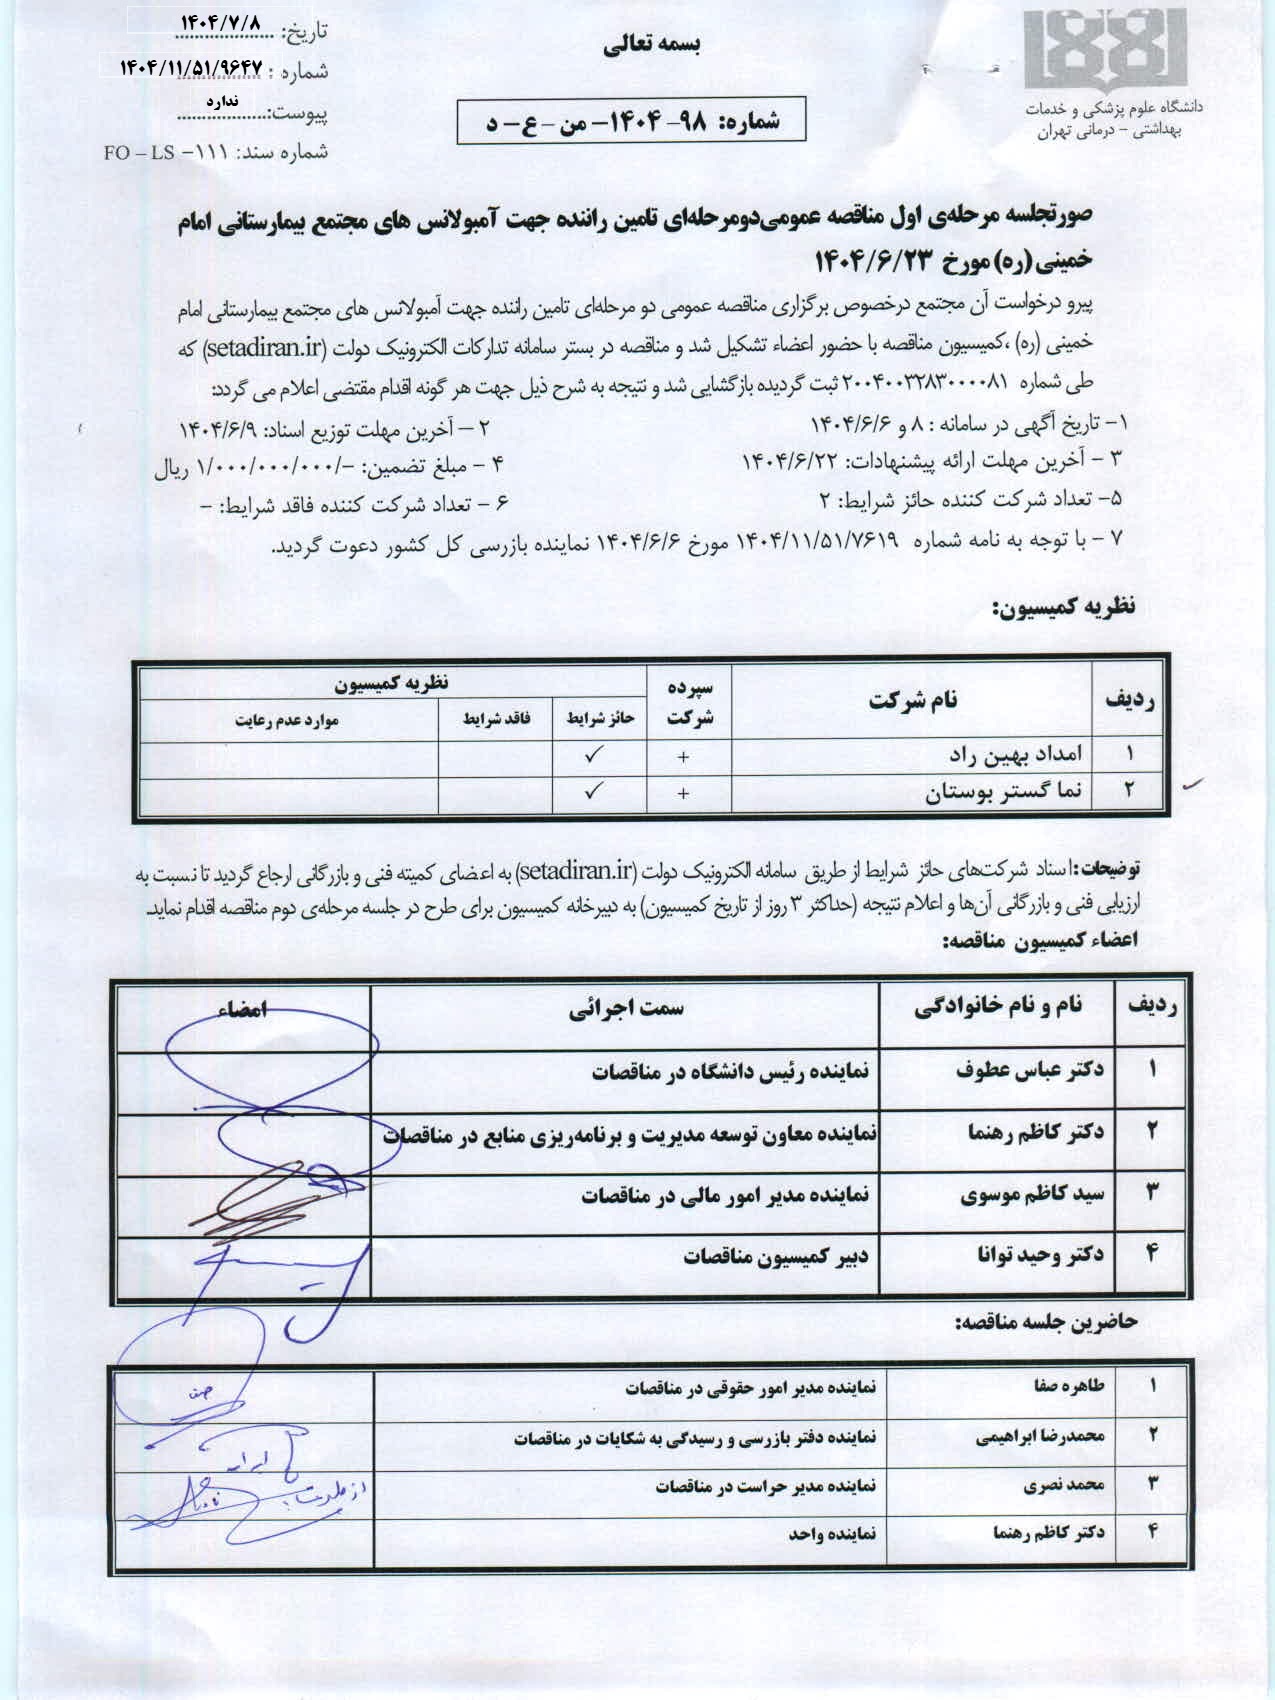 بسمه تعالی
تاریخ: ۱۴۰۴/۷/۸
شماره: ۱۴۰۴/۱۱/۵۱/۹۶۴۷
پیوست: ندارد
شماره سند: FO – LS –۱۱۱
دانشگاه علوم پزشکی و خدمات
بهداشتی – درمانی تهران
شماره: ۹۸- ۱۴۰۴- من – ع – د
صورتجلسه مرحله‌ی اول مناقصه عمومی‌دومرحله‌ای تامین راننده جهت آمبولانس های مجتمع بیمارستانی امام
خمینی (ره) مورخ ۱۴۰۴/۶/۲۳
پیرو درخواست آن مجتمع درخصوص برگزاری مناقصه عمومی دو مرحله‌ای تامین راننده جهت آمبولانس های مجتمع بیمارستانی امام
خمینی (ره) ،کمیسیون مناقصه با حضور اعضاء تشکیل شد و مناقصه در بستر سامانه تدارکات الکترونیک دولت (setadiran.ir) که
طی شماره ۲۰۰۴۰۰۳۲۸۳۰۰۰۰۸۱ ثبت گردیده بازگشایی شد و نتیجه به شرح ذیل جهت هر گونه اقدام مقتضی اعلام می گردد:
۱- تاریخ آگهی در سامانه : ۸ و ۱۴۰۴/۶/۶ ۲ – آخرین مهلت توزیع اسناد: ۱۴۰۴/۶/۹
۳ - آخرین مهلت ارائه پیشنهادات: ۱۴۰۴/۶/۲۲ ۴ - مبلغ تضمین: -/۱/۰۰۰/۰۰۰/۰۰۰ ریال
۵- تعداد شرکت کننده حائز شرایط: ۲ ۶ - تعداد شرکت کننده فاقد شرایط: -
۷ - با توجه به نامه شماره ۱۴۰۴/۱۱/۵۱/۷۶۱۹ مورخ ۱۴۰۴/۶/۶ نماینده بازرسی کل کشور دعوت گردید.
نظریه کمیسیون:
ردیف نام شرکت سپرده شرکت نظریه کمیسیون
حائز شرایط فاقد شرایط موارد عدم رعایت
۱ امداد بهین راد + ✓
۲ نما گستر بوستان + ✓
توضیحات: اسناد شرکت‌های حائز شرایط از طریق سامانه الکترونیک دولت (setadiran.ir) به اعضای کمیته فنی و بازرگانی ارجاع گردید تا نسبت به
ارزیابی فنی و بازرگانی آن‌ها و اعلام نتیجه (حداکثر ۳ روز از تاریخ کمیسیون) به دبیرخانه کمیسیون برای طرح در جلسه مرحله‌ی دوم مناقصه اقدام نماید.
اعضاء کمیسیون مناقصه:
ردیف نام و نام خانوادگی سمت اجرائی امضاء
۱ دکتر عباس عطوف نماینده رئیس دانشگاه در مناقصات
۲ دکتر کاظم رهنما نماینده معاون توسعه مدیریت و برنامه‌ریزی منابع در مناقصات
۳ سید کاظم موسوی نماینده مدیر امور مالی در مناقصات
۴ دکتر وحید توانا دبیر کمیسیون مناقصات
حاضرین جلسه مناقصه:
۱ طاهره صفا نماینده مدیر امور حقوقی در مناقصات
۲ محمدرضا ابراهیمی نماینده دفتر بازرسی و رسیدگی به شکایات در مناقصات
۳ محمد نصری نماینده مدیر حراست در مناقصات
۴ دکتر کاظم رهنما نماینده واحد